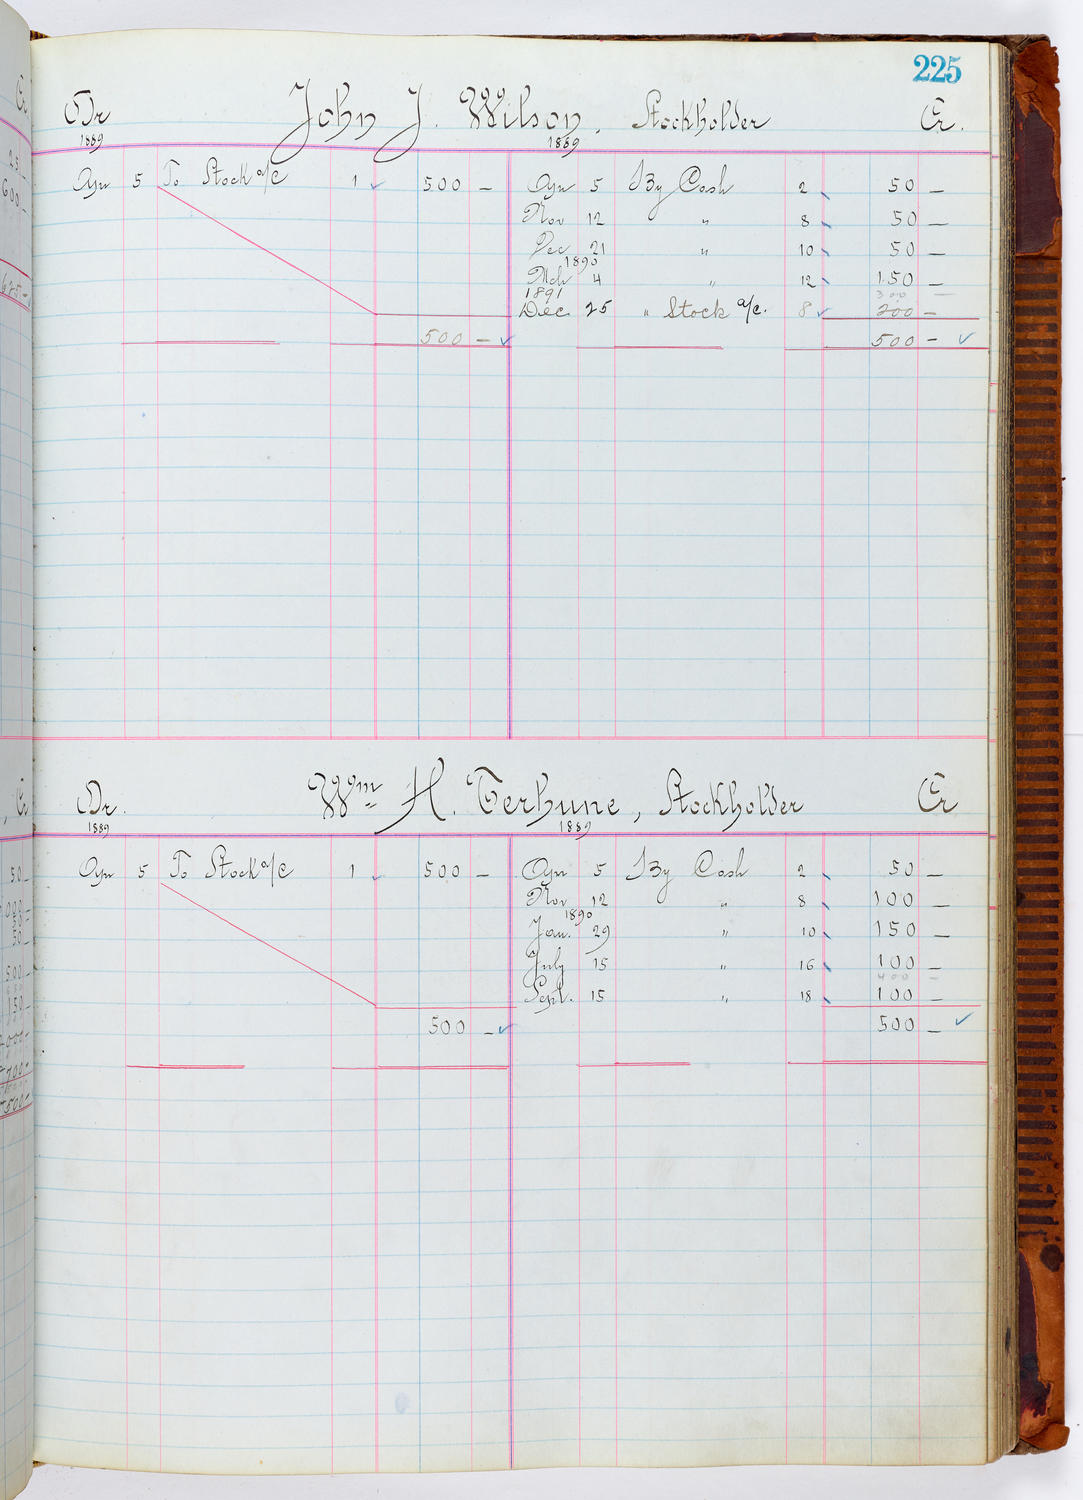 225
Dr John J. Wilson, Stockholder Cr.
1889 1889
Apr 5 To Stock a/c 1 500 — Apr 5 By Cash 2 50 —
Nov 12 " 8 50 —
Dec 21 " 10 50 —
1890
Mch 4 " 12 150 —
1891 300 —
Dec. 25 " Stock a/c. 8 200 —
500 — 500 —
Dr. Wm H. Terhune, Stockholder Cr
1889 1889
Apr 5 To Stock a/c 1 500 — Apr 5 By Cash 2 50 —
Nov 12 " 8 100 —
1890
Jan. 29 " 10 150 —
July 15 " 16 100 —
400 —
Sept. 15 " 18 100 —
500 — 500 —